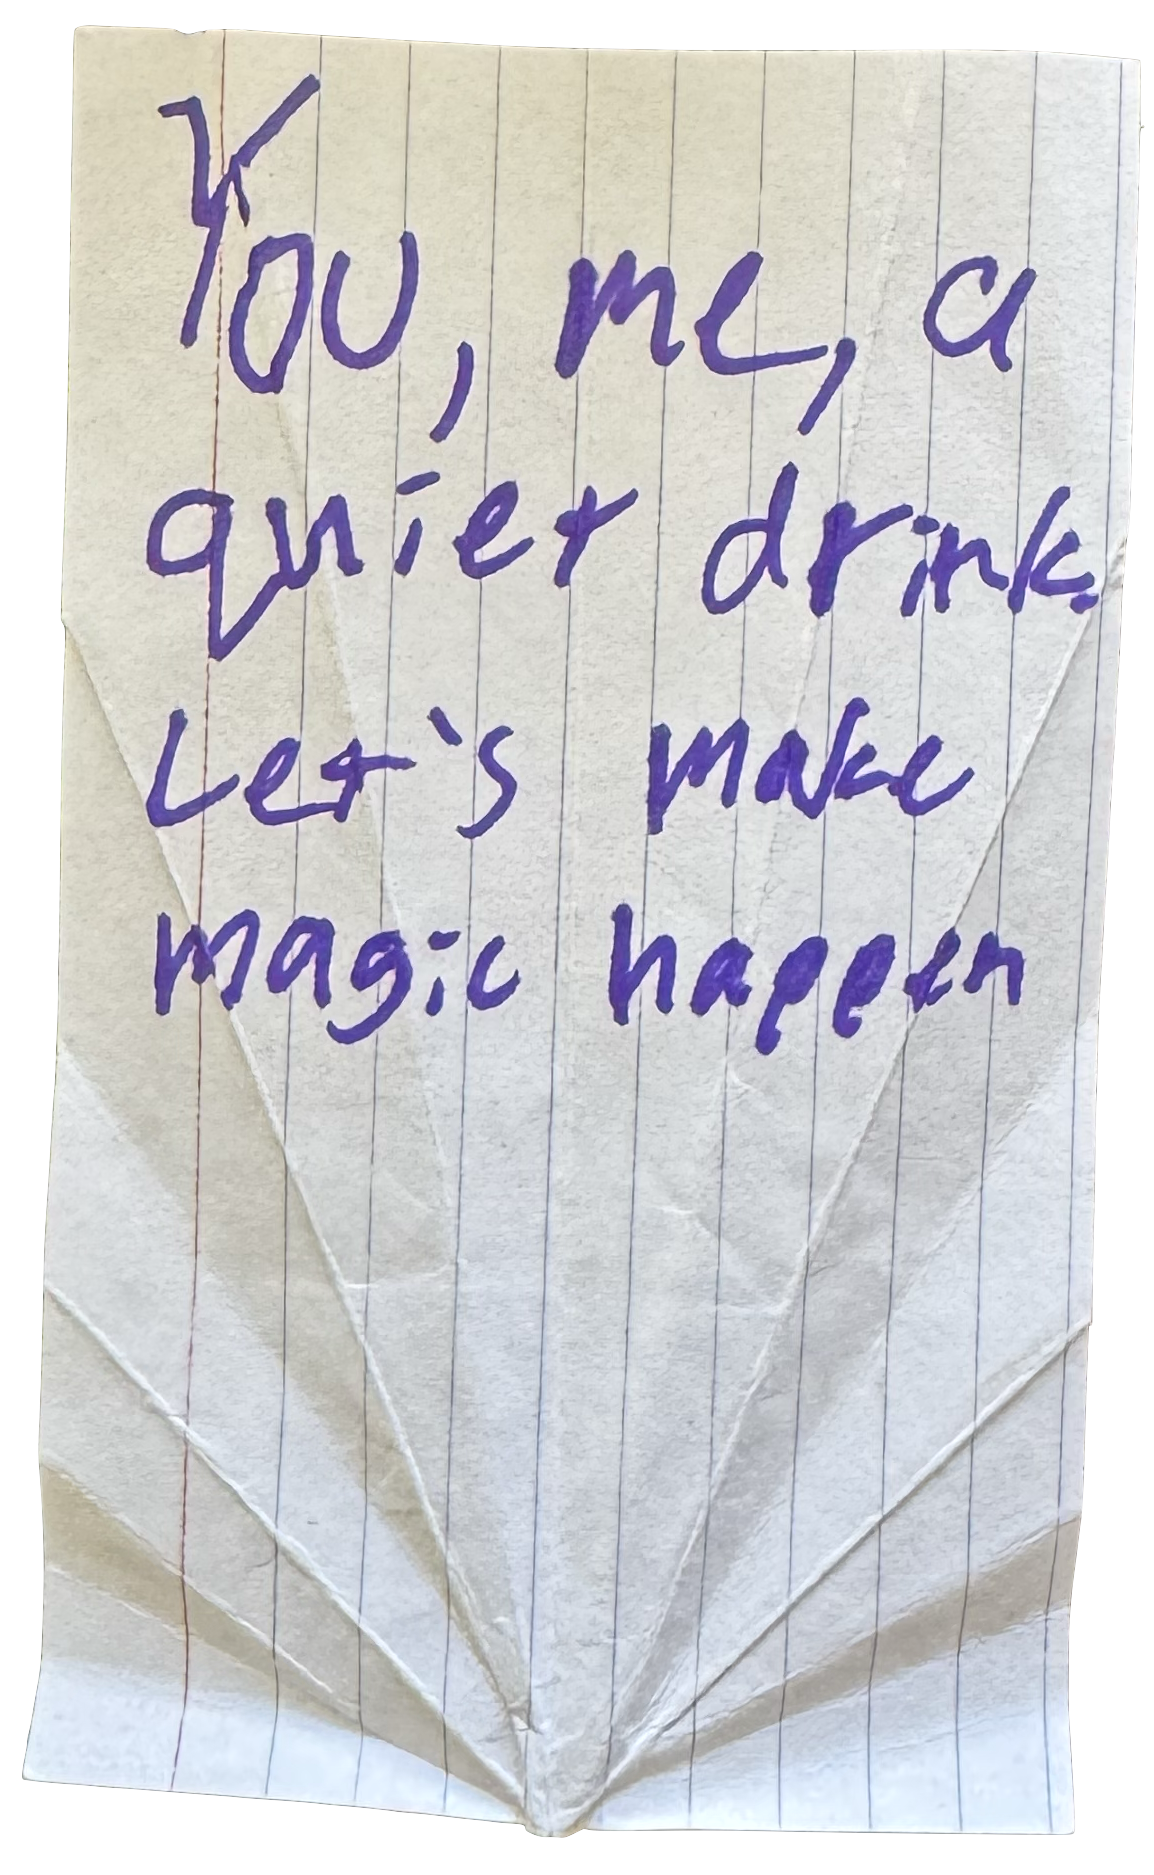 You, me, a
quiet drink.
Let's make
magic happen